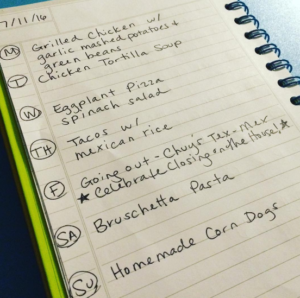 7/11/16
M Grilled Chicken w/
garlic mashed potatoes &
green beans
T Chicken Tortilla Soup
W Eggplant Pizza
spinach salad
TH Tacos w/
mexican rice
F Going out - Chuy's Tex-Mex
★ celebrate closing on the House! ★
SA Bruschetta Pasta
SU Homemade Corn Dogs